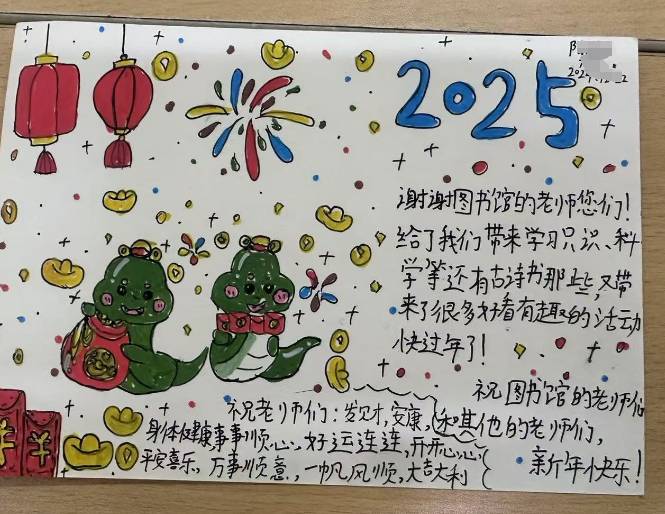 2025
谢谢图书馆的老师您们！
给了我们带来学习只识、科
学等还有古诗书那些，又带
来了很多好看有趣的活动
快过年了！
祝图书馆的老师们
和其他的老师们，
新年快乐！
祝老师们：发财，安康，
身体健康事事顺心，好运连连，开开心心
平安喜乐，万事顺意，一帆风顺，大吉大利
¥ ¥